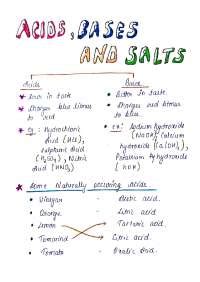 ACIDS, BASES
AND SALTS
Acids
Sour in taste
Changes blue litmus
to red
eg: Hydrochloric
acid (HCl),
sulphuric acid
(H₂SO₄), Nitric
acid (HNO₃)
Bases
Bitter in taste.
Changes red litmus
to blue.
ex: Sodium hydroxide
(NaOH), Calcium
hydroxide (Ca(OH)₂),
Potassium hydroxide
(KOH)
Some Naturally occuring acids
Vinegar - Acetic acid.
Orange - Citric acid.
Lemon Tartaric acid.
Tamarind Citric acid.
Tomato - Oxalic acid.